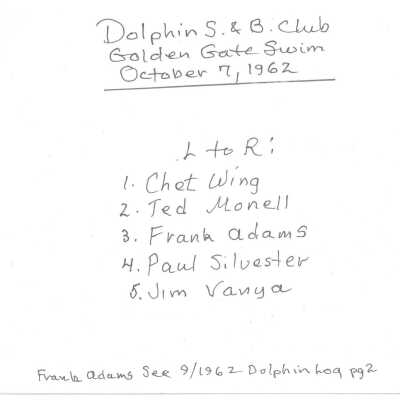 Dolphin S. & B. Club
Golden Gate Swim
October 7, 1962
L to R:
1. Chet Wing
2. Ted Monell
3. Frank Adams
4. Paul Silvester
5. Jim Vanya
Frank Adams See 9/1962 Dolphin Log pg 2